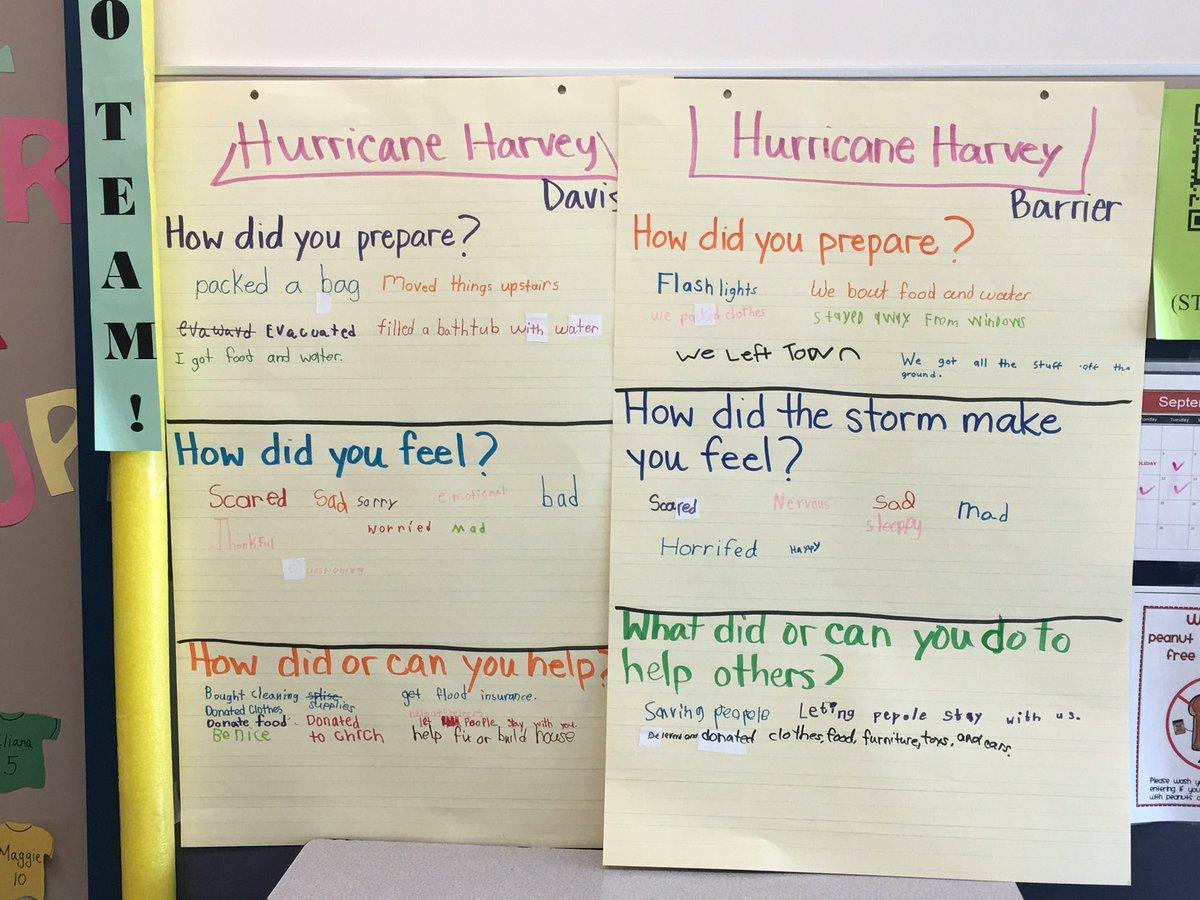 O
TEAM!
Hurricane Harvey
Davis
How did you prepare?
packed a bag Moved things upstairs
evaward Evacuated filled a bathtub with water
I got food and water.
How did you feel?
Scared Sad sorry emotional bad
worried mad
Thankful
How did or can you help?
Bought cleaning splise supplies get flood insurance.
Donated Clothes
Donate food Donated to chrch let People stay with you.
Be nice help fix or build house
Hurricane Harvey
Barrier
How did you prepare?
Flash lights We bout food and water
we packed clothes stayed away From windows
We Left Town We got all the stuff off the
ground.
How did the storm make
you feel?
Scared Nervous Sad mad
sleeppy
Horrifed Happy
What did or can you do to
help others?
Saving peaople Leting pepole stay with us.
donated clothes, food, furniture, toys, and cars.
R
UP
Eliana
5
Maggie
10
(ST
Septe
Monday Tuesday
peanut
free
Please wash y
entering if you
with peanuts o